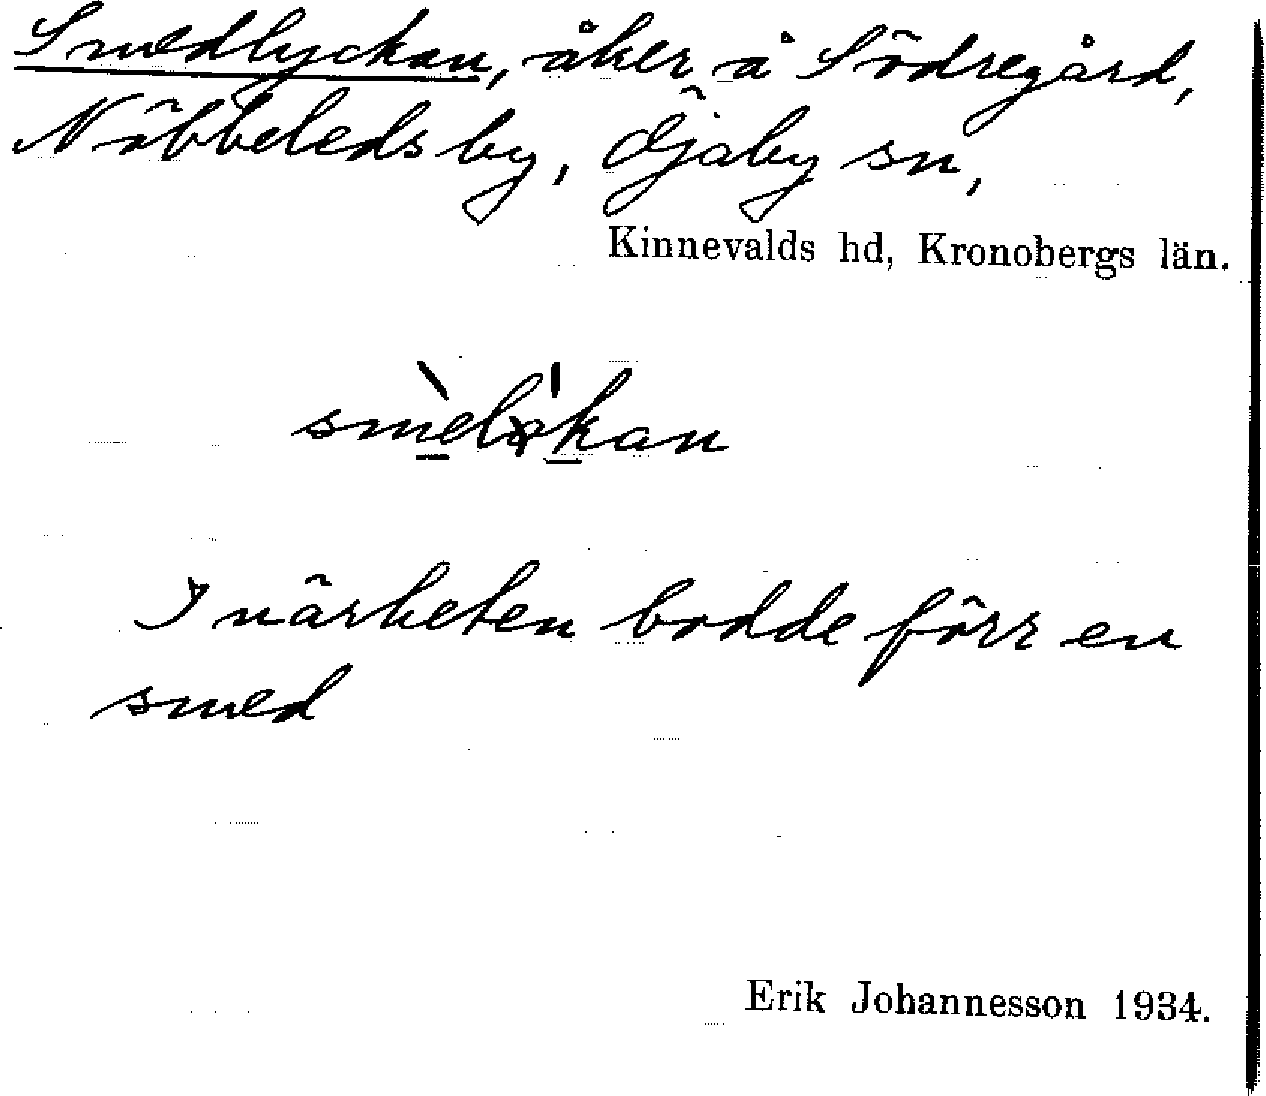 Smedlyckan, åker å Södregård,
Nöbbeleds by, Öjaby sn,
Kinnevalds hd, Kronobergs län.
I närheten bodde förr en
smed
Erik Johannesson 1934.